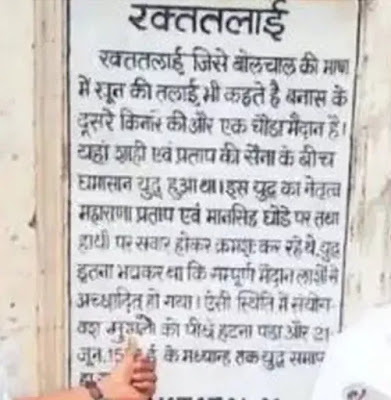 रक्ततलाई
रक्ततलाई जिसे बोलचाल की भाषा
में खून की तलाई भी कहते है बनास के
दूसरे किनारे की और एक चौडा मैदान है।
यहां शाही एवं प्रताप की सेना के बीच
घमासान युद्ध हुआ था। इस युद्ध का नेतृत्व
महाराणा प्रताप एवं मानसिंह घोडे पर तथा
हाथी पर सवार होकर क्रमशः कर रहे थे, युद्ध
इतना भयंकर था कि सम्पूर्ण मैदान लाशों से
अच्छादित हो गया। ऐसी स्थिति में संयोग-
वश को पीछे हटना पडा और 21
जून, के मध्यान्ह तक युद्ध